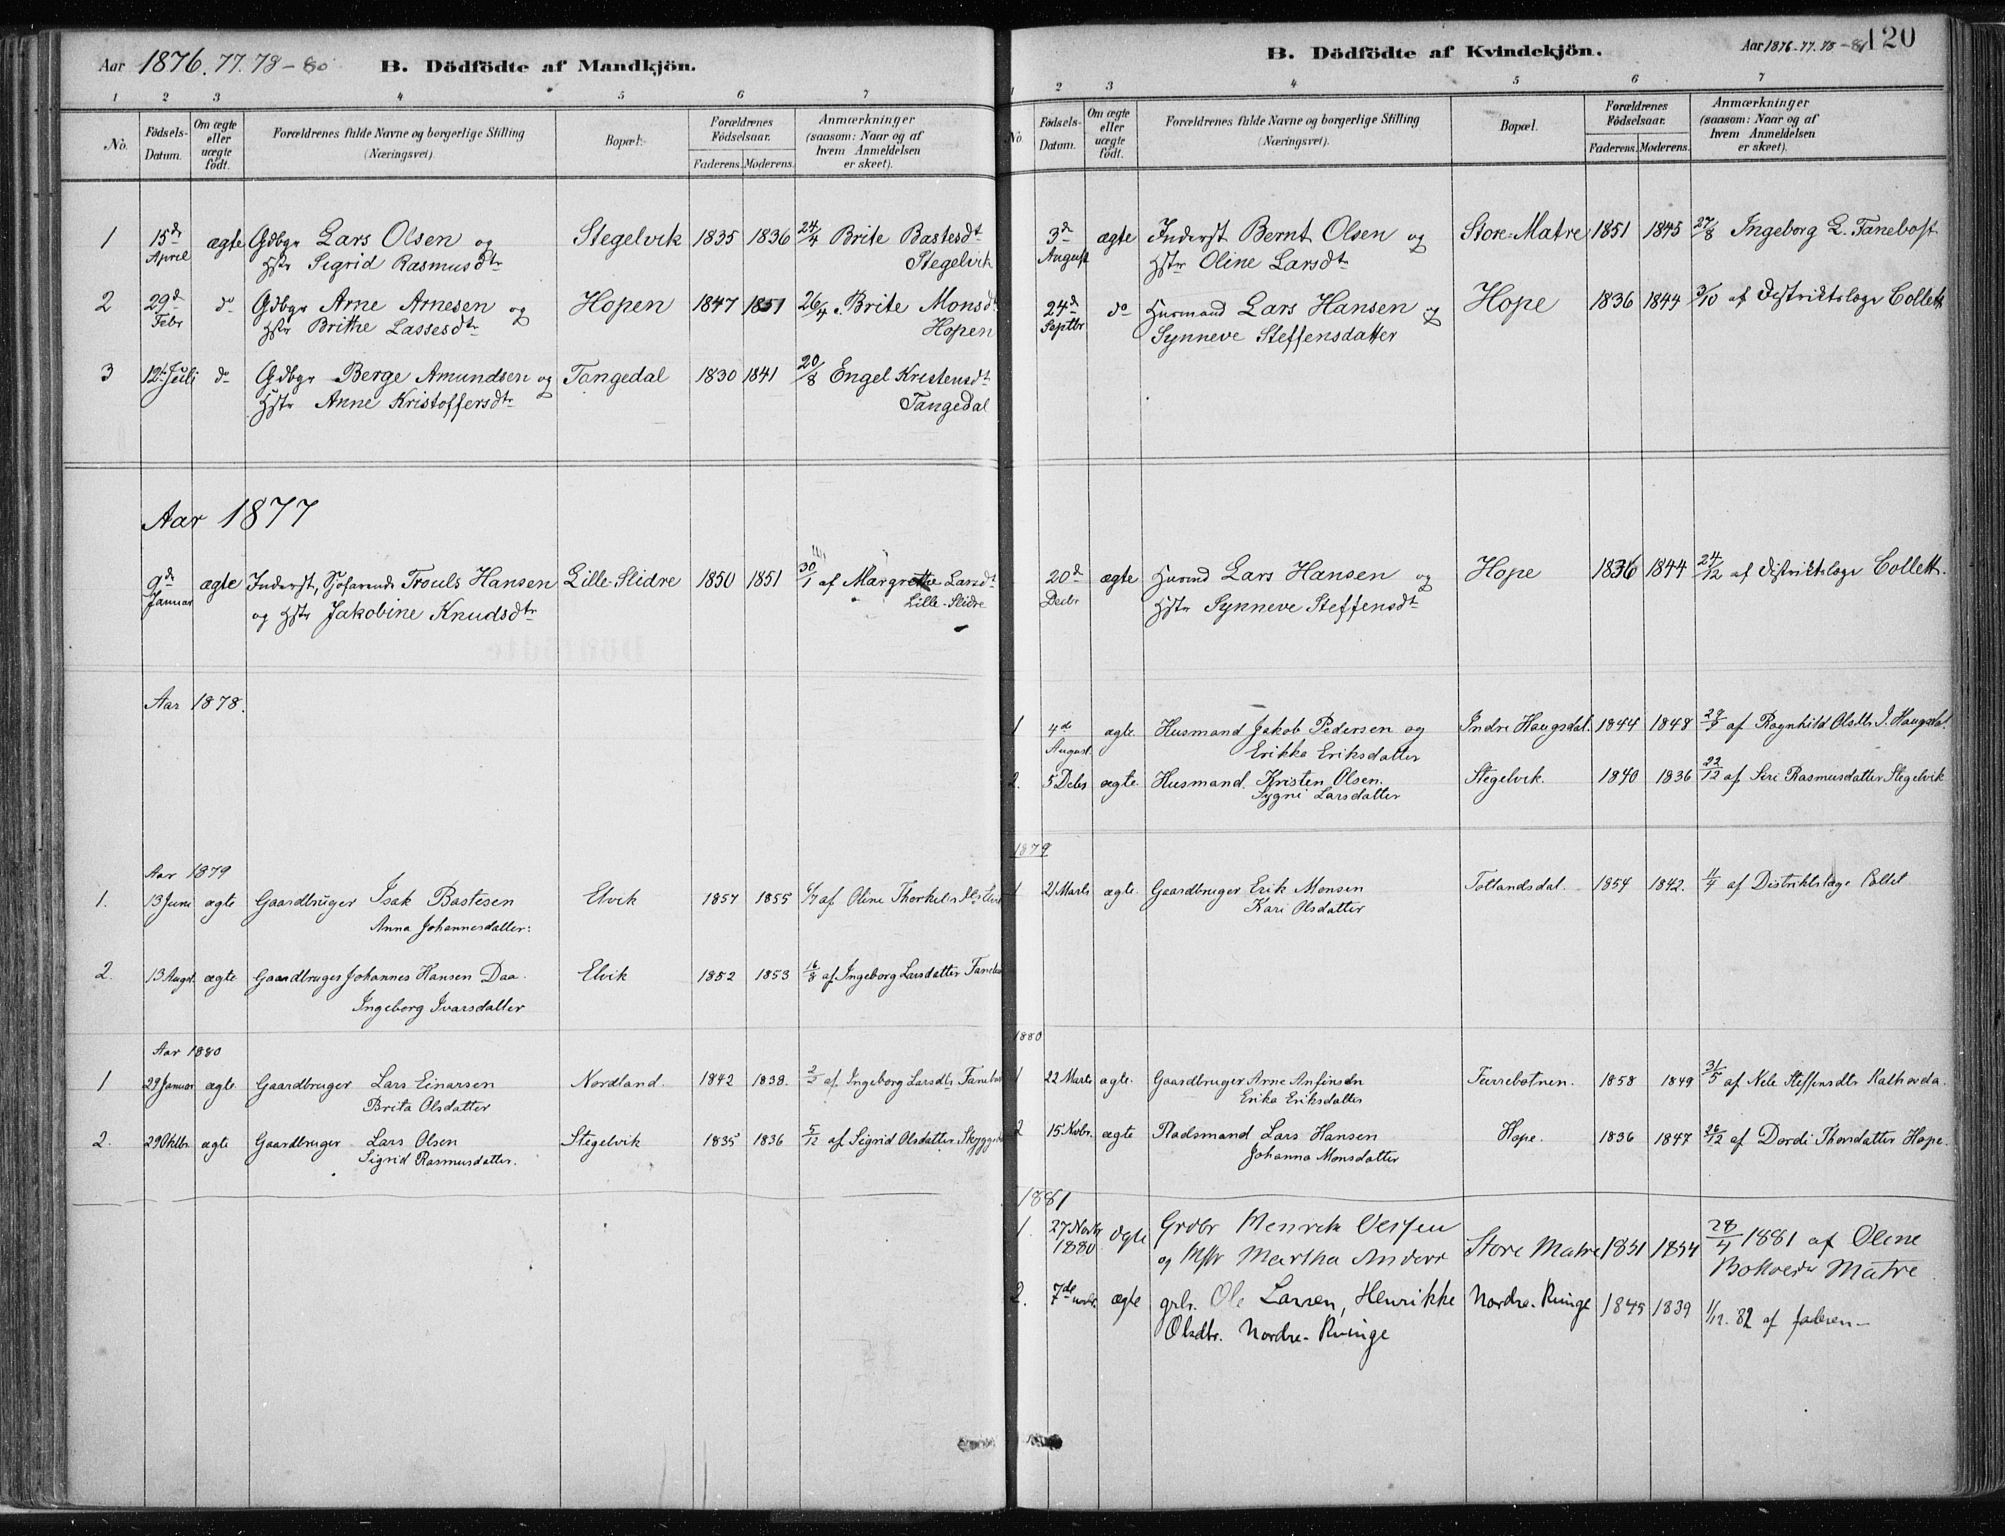 Aar 1876.77.78-80
B. Dödfödte af Mandkjön.
1 2 3 4 5 6 7
No.
Födsels-Datum.
Om ægte eller uægte født.
Forældrenes fulde Navne og borgerlige Stilling
(Næringsvei).
Bopæl.
Forældrenes Födselsaar.
Faderens. Moderens.
Anmærkninger
(saasom: Naar og af
hvem Anmeldelsen
er skeet).
1 15de April ægte Gdbgr Lars Olsen og Stegelvik 1835 1836 24/4 Brite Bastesdtr
Hstr Sigrid Rasmusdtr Stegelvik
2 29d Febr do Gdbgr Arne Arnesen og Hopen 1847 1851 26/4 Brite Monsdtr
Hstr Brithe Lassesdtr Hopen
3 12t Juli do Gdbgr Berge Amundsen og Tangedal 1830 1841 20/8 Engel Kristensdtr
Hstr Anne Kristoffersdtr Tangedal
Aar 1877
9de Januar ægte Inderst, Sjøfarende Trouls Hansen Lille-Slidre 1850 1851 30/1 af Margrethe Larsdtr
og Hstr Jakobine Knudsdtr Lille-Slidre
Aar 1878.
Aar 1879
1. 13 Juni ægte Gaardbruger Isak Bastesen Elvik 1857 1855 6/7 af Oline Thorkels
Anna Johannesdatter.
2. 13 Augst. ægte Gaardbruger Johannes Hansen Daa. Elvik 1852 1853 16/8 af Ingeborg Larsdatter
Ingeborg Ivarsdatter
Aar 1880
1 29 Januar ægte Gaardbruger Lars Einarsen Nordland. 1842 1838. 2/2 af Ingeborg Larsdtr
Brita Olsdatter
2. 29 Oktbr. ægte Gaardbruger Lars Olsen Stegelvik 1835 1836 5/12 af Sigrid Olsdatter
Sigrid Rasmusdatter.
B. Dödfödte af Kvindekjön.
Aar 1876-77.78-81
120
1 2 3 4 5 6 7
No.
Födsels-Datum.
Om ægte eller uægte født.
Forældrenes fulde Navne og borgerlige Stilling
(Næringsvei).
Bopæl.
Forældrenes Födselsaar.
Faderens. Moderens.
Anmærkninger
(saasom: Naar og af
hvem Anmeldelsen
er skeet).
3d August ægte Inderst Bernt Olsen og Store-Matre 1851 1845 27/8 Ingeborg L. Tanebost
Hstr Oline Larsdtr
24d Septbr do Husmand Lars Hansen og Hope 1836 1844 3/10 af Distriktslæge Collett
Synneve Steffensdatter
20d Decbr ægte Husmd Lars Hansen og Hope 1836 1844 24/12 af Distriktslæge Collett.
Hstr Synneve Steffensdtr
1 4de August. ægte. Husmand Jakob Pedersen og Indre Haugsdal. 1844 1848 af Ragnhild Olsdtr I. Haugsdal.
Erikka Eriksdatter
2. 5 Debr ægte. Husmand. Kristen Olsen. Stegelvik. 1840 1836 22/12 af Siri Rasmusdatter Stegelvik
Sygni Larsdatter
1879
1 21 Marts ægte. Gaardbruger Erik Monsen Totlandsdal. 1854 1842. af Distriktslæge Collet
Kari Olsdatter
1880
1 22 Marts ægte. Gaardbruger Arne Anfinsdn Furrebotnen. 1858 1849 31/5 af Nele Steffensdtr
Erika Eriksdatter
2 15 Novbr. ægte Pladsmand Lars Hansen Hope. 1836 1847 26/12 af Dordi Thorsdatter Hope.
Johanna Monsdatter
1881
1. 27 Novbr 1880 ægte Grdbr Henrik Store Matre 1851 1854 28/4 1881 af Oline
og Martha Matre
2. 7de novbr. ægte grbr. Ole Larsen, Henrikke Nordre-Kvinge 1845 1839 1/12. 82 af faderen-
Olsdtr. Nordre-Kvinge